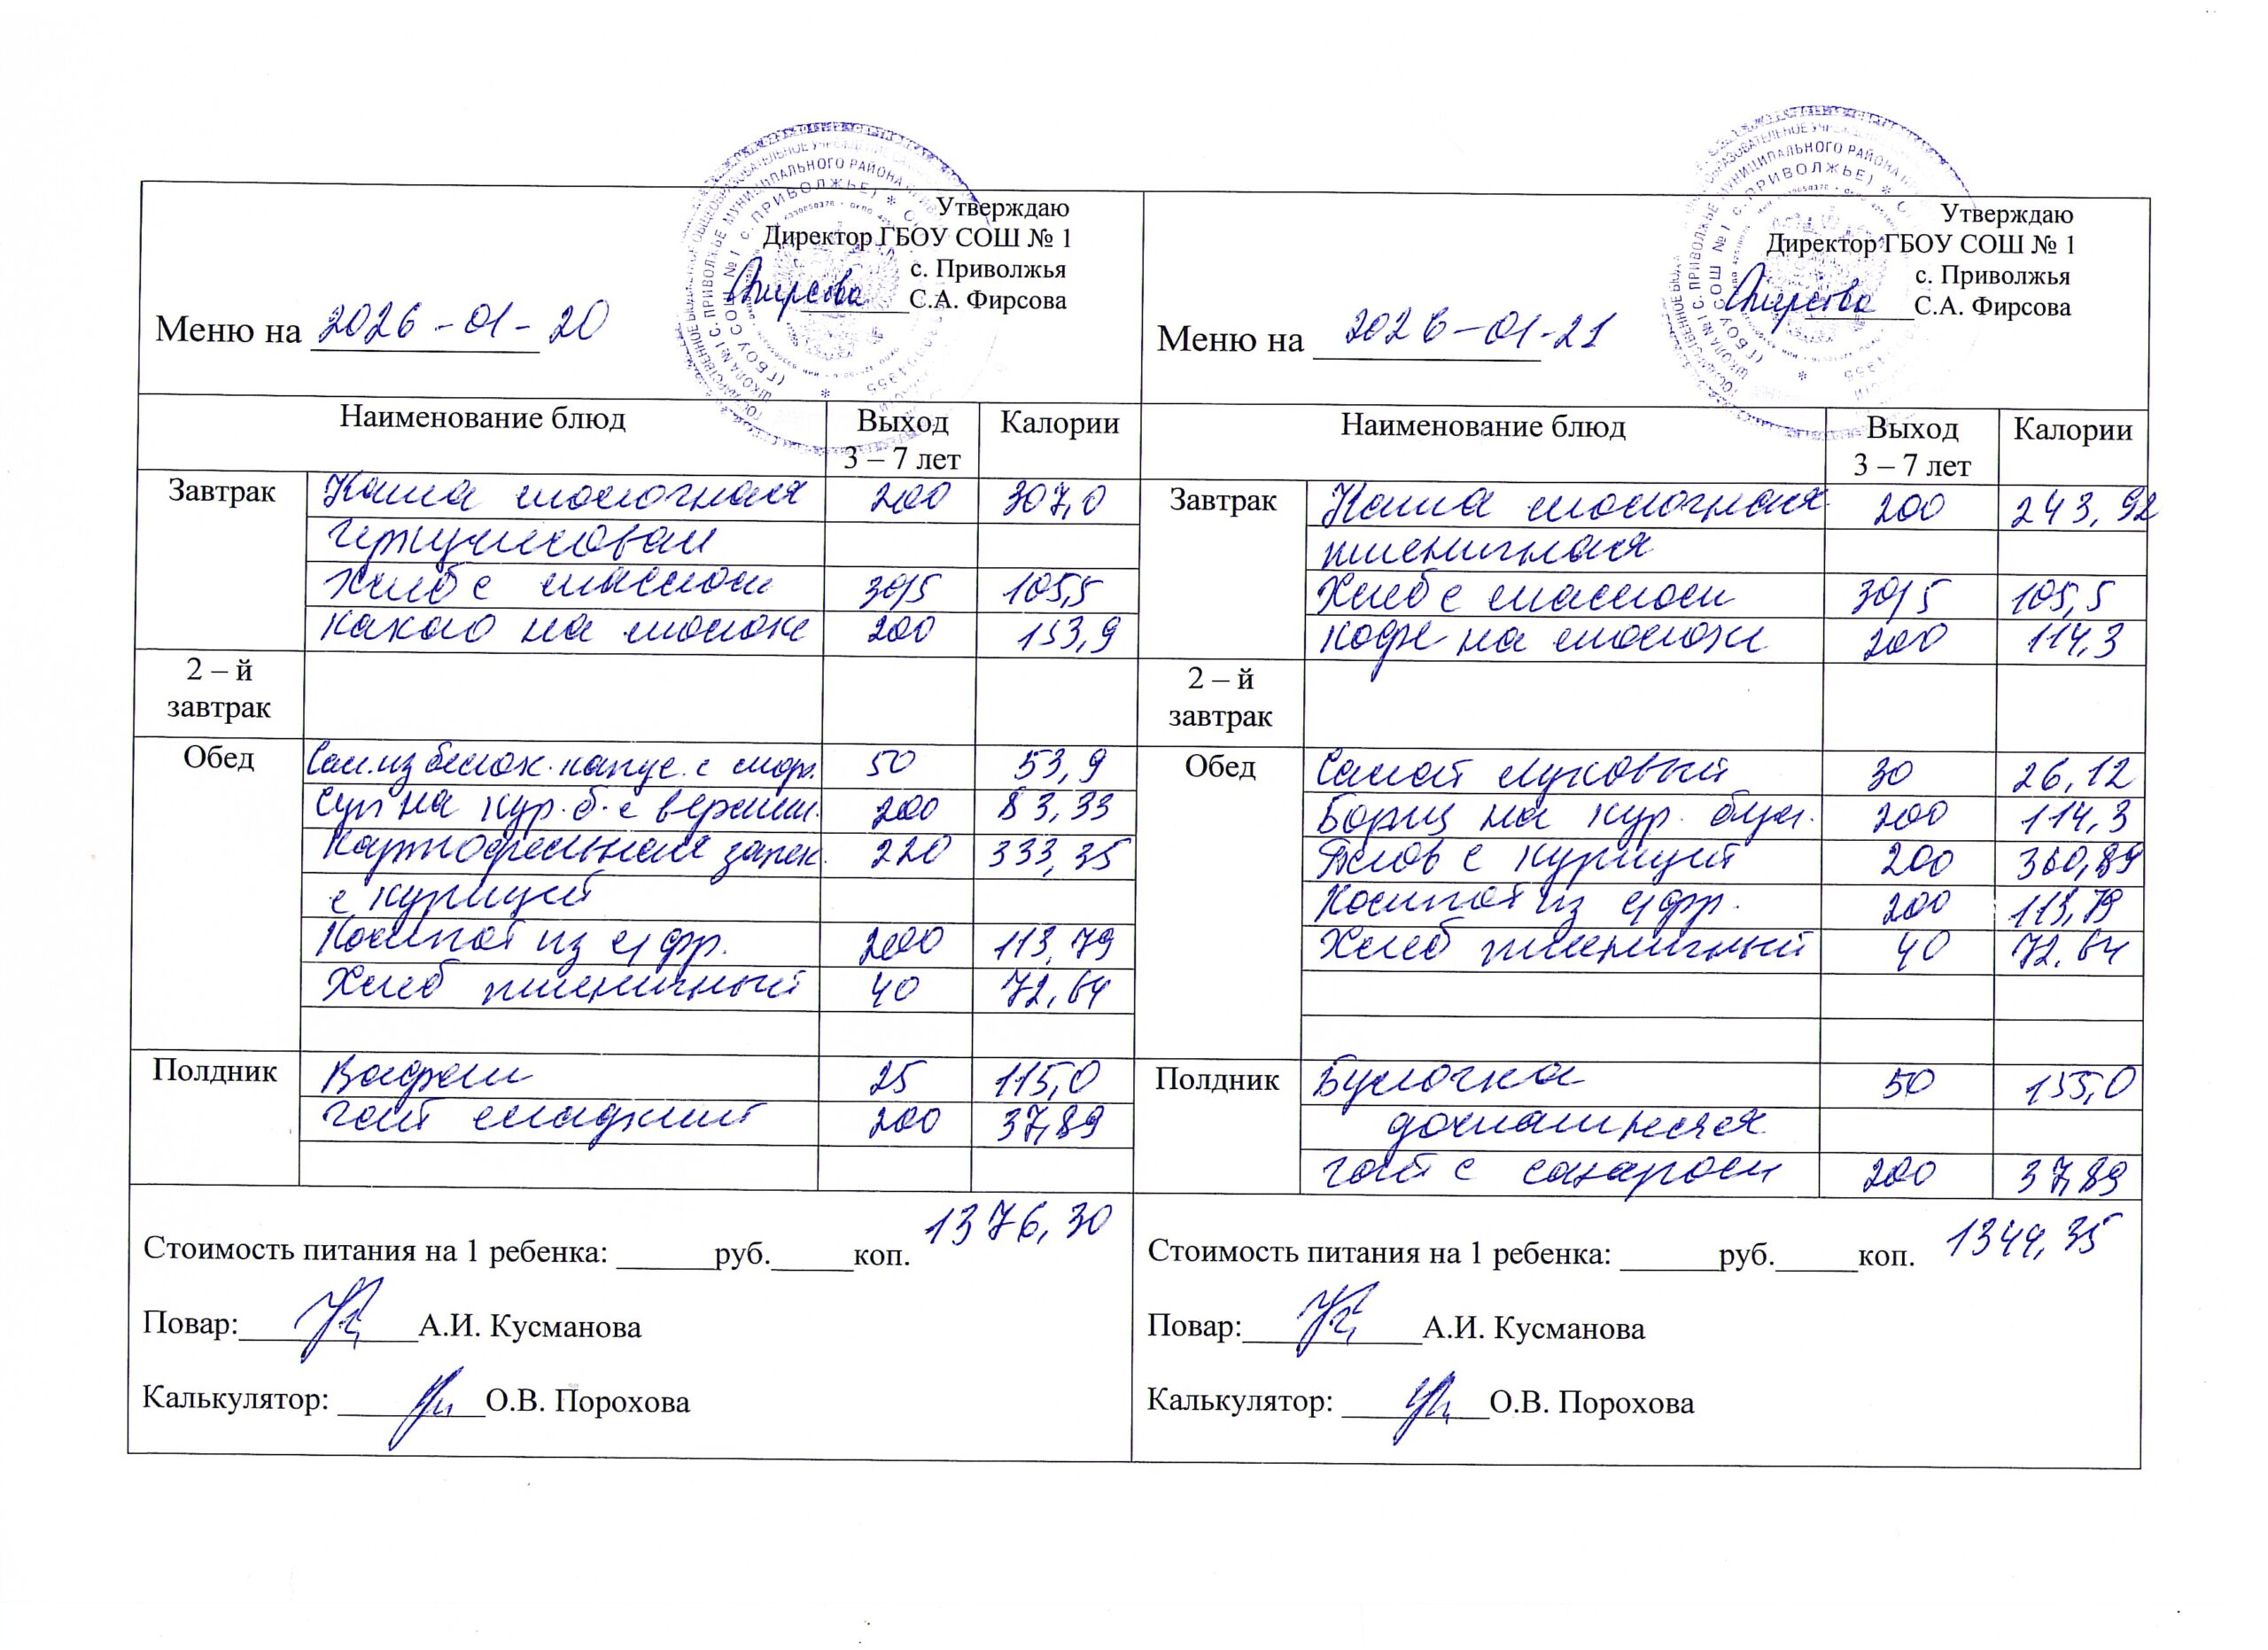 Утверждаю
Директор ГБОУ СОШ № 1
с. Приволжья
С.А. Фирсова
Меню на 2026-01-20
Наименование блюд Выход 3 – 7 лет Калории
Завтрак Каша молочная 200 307,0
геркулесовая
Хлеб с маслом 30/5 105,5
Какао на молоке 200 153,9
2 – й завтрак
Обед Сал. из белок. капус. с морк. 50 53,9
Суп на кур. б. с вермиш. 200 83,33
Картофельная запек. 220 333,35
с курицей
Компот из с/фр. 200 113,79
Хлеб пшеничный 40 72,64
Полдник Вафли 25 115,0
Чай сладкий 200 37,89
1376,30
Стоимость питания на 1 ребенка: ______руб._____коп.
Повар: А.И. Кусманова
Калькулятор: О.В. Порохова
Утверждаю
Директор ГБОУ СОШ № 1
с. Приволжья
С.А. Фирсова
Меню на 2026-01-21
Наименование блюд Выход 3 – 7 лет Калории
Завтрак Каша молочная 200 243,92
пшеничная
Хлеб с маслом 30/5 105,5
Кофе на молоке 200 114,3
2 – й завтрак
Обед Салат луковый 30 26,12
Борщ на кур. бул. 200 114,3
Плов с курицей 200 360,89
Компот из с/фр. 200 113,79
Хлеб пшеничный 40 72,64
Полдник Булочка 50 155,0
домашняя
Чай с сахаром 200 37,89
1344,35
Стоимость питания на 1 ребенка: ______руб._____коп.
Повар: А.И. Кусманова
Калькулятор: О.В. Порохова